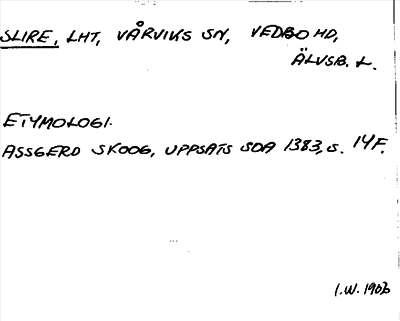 SLIRE, LHT, VÅRVIKS SN, VEDBO HD,
ÄLVSB. L.
ETYMOLOGI.
ASSGERD SKOOG, UPPSATS SOA 1383, S. 14F.
I.W. 1903